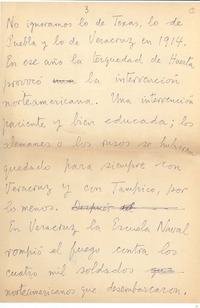 3
No ignoramos lo de Texas, lo de
Puebla y lo de Veracruz en 1914.
En ese año la terquedad de Huerta
provocó la intervención
norteamericana. Una intervención
paciente y bien educada; los
alemanes o los rusos se hubieran
quedado para siempre con
Veracruz y con Tampico, por
lo menos. Después
En Veracruz la Escuela Naval
rompió el fuego contra los
cuatro mil soldados que
norteamericanos que desembarcaron.